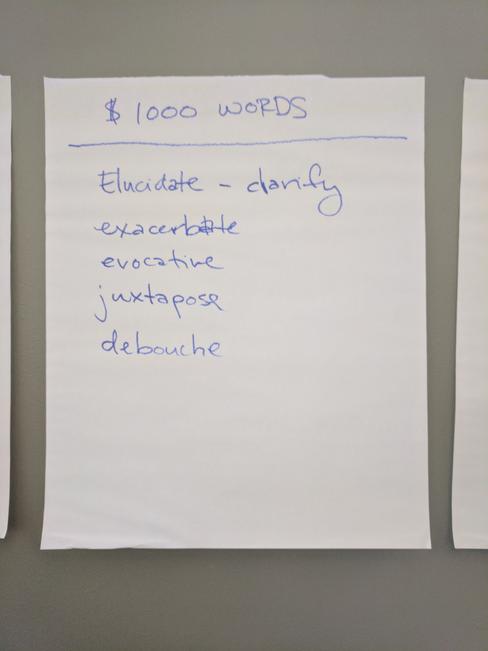 $ 1000 WORDS
Elucidate - clarify
exacerbate
evocative
juxtapose
debouche